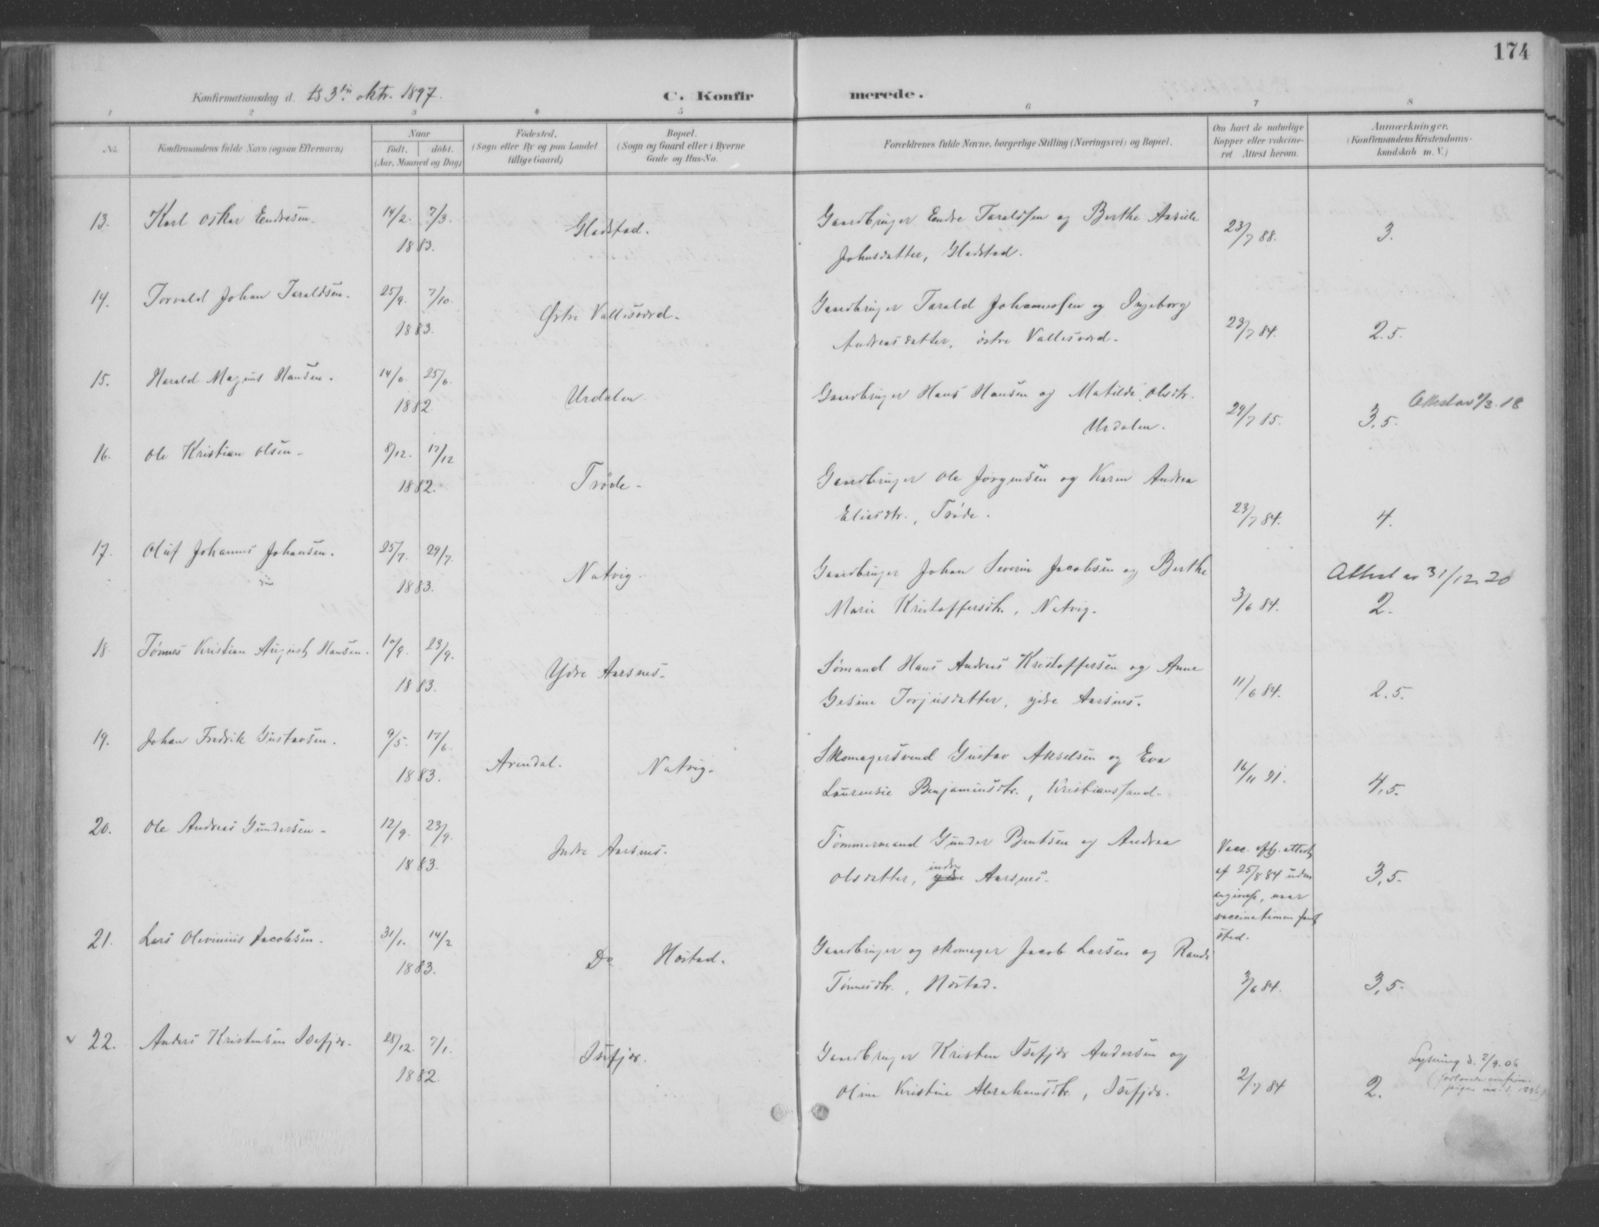 174
Konfirmationsdag d. 3 oktr. 1897.
C. Konfirmerede.
1 2 3 4 5 6 7 8
No.
Konfirmandens fulde Navn (ogsaa Efternavn)
Naar
Födt. döbt.
(Aar, Maaned og Dag)
Födested.
(Sogn eller By og paa Landet
tillige Gaard)
Bopæl.
(Sogn og Gaard eller i Byerne
Gade og Hus-No.
Forældrenes fulde Navne, borgerlige Stilling (Næringsvei) og Bopæl.
Om havt de naturlige
Kopper eller vaccineret Attest herom.
Anmærkninger.
(Konfirmandens Kristendomskundskab m. V.)
13. Karl Oskar Endresen. 14/2. 7/3. 1883. Gladstad. Gaardbruger Endre Taraldsen og Berthe
Johnsdatter, Gladstad. 23/7 88. 3.
14. Torvald Johan Taraldsen. 25/9. 7/10. 1883. Østre Vallesværd. Gaardbruger Tarald Johannessen og Ingeborg
Andreasdatter, östre Vallesværd. 23/7 84. 2.5.
15. Harald Magnus Hansen. 1882 Urdalen Gaardbruger Hans Hansen og Matilde Olsdtr.
Urdalen. 29/7 85. 3,5.
16. Ole Kristian Olsen. 8/12. 17/12 1882. Trøde. Gaardbruger Ole Jørgensen og Karen Andrea
Eliasdtr., Trøde. 23/7 84. 4.
17. Oluf Johannes Johansen. 25/7. 29/7. 1883. Natvig. Gaardbruger Johan Severin Jacobsen og Berthe
Marie Kristoffersdtr., Natvig. 3/6 84. Attest av 31/12 20
2.
18. Tönnes Kristian August Hansen. 10/9. 23/9. 1883. Ydre Aarsnes. Sømand Hans Andreas Kristoffersen og Anne
Gesine Torjusdatter, ydre Aarsnes. 11/6 84. 2.5.
19. Johan Fredrik Gustavsen. 9/5. 17/6. 1883. Arendal. Natvig. Skomagersvend Gustav Akselsen og Eva
Laurensie Benjaminsdtr., Kristianssand. 16/11 91. 4,5.
20. Ole Andreas Gundersen. 12/9. 23/9. 1883. Indre Aarsnes. Tømmermand Gunder Berntsen og Andrea
Olsdatter, indre ydre Aarsnes. Vacc. attest
af 25/8 84 uden
vaccinationen fandt
sted. 3,5.
21. Lars Olevinius Jacobsen. 31/1. 14/2 1883. Do Høstad. Gaardbruger og skomager Jacob Larsen og Randi
Tønnesdtr., Høstad. 3/6 84. 3,5.
22. Anders Kristensen Isefjær. 28/12. 7/1. 1882. Isefjær. Gaardbruger Kristen Isefjær Andersen og
Oline Kristine Abrahamsdtr., Isefjær. 2/7 84 2.
Lysning d. 2/9.06